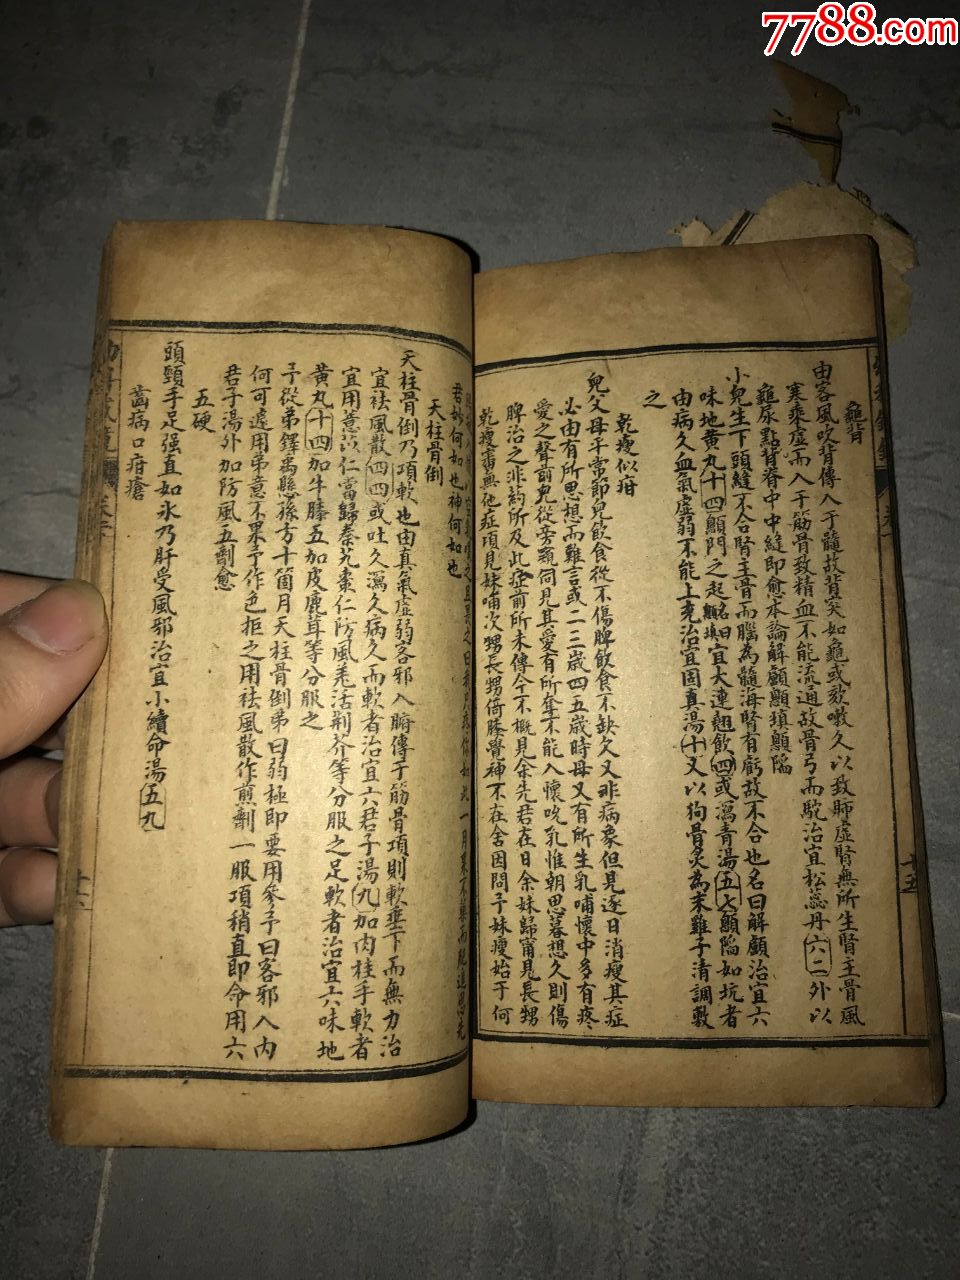 7788.com
龜背
由客風吹背傳入于髓故背突如龜或欬嗽久以致肺虛腎無所生腎王骨風
寒乘虛而入于筋骨致精血不能流通故骨弓而駝治宜松蕊丹六二外以
龜尿點背脊中中縫即愈本論解顱顖填顖陷
小兒生下頭縫不合腎主骨而腦為髓海腎有虧故不合也名曰解顱治宜六
味地黃丸十四顖門之起名曰顖填宜大連翹飲四或瀉青湯五七顖陷如坑者
由病久血氣虛弱不能上充治宜固真湯十又以狗骨炙為末雞子清調敷
之
乾瘦似疳
兒父母平常節兒飲食從不傷脾飲食不缺欠又非病象但見逐日消瘦其症
必由有所思想而難言或二三歲四五歲時母又有所生乳哺懷中多有疼
愛之聲前兒從旁覷伺見其愛有所奪不能入懷吮乳惟朝思暮想久則傷
脾治之非葯所及此症前所未傳今不概見余先君在日余妹歸甯見長甥
乾瘦番無他症項見妹哺次甥長甥倚膝覺神不在舍因問予妹瘦始于何
一月果不藥而
君妙何如也神何如也
天柱骨倒
天柱骨倒乃項軟也由真氣虛弱客邪入腑傳于筋骨項則軟垂下而無力治
宜祛風散四四或吐久瀉久病久而軟者治宜六君子湯九加肉桂手軟者
宜用薏苡仁當歸秦艽棗仁防風羌活荊芥等分服之足軟者治宜六味地
黃丸十四加牛膝五加皮鹿茸等分服之
予從弟鐸禹懸孫方十箇月天柱骨倒弟曰弱極即要用參予曰客邪入內
何可遽用弟意不果予作色拒之用祛風散作煎劑一服項稍直即命用六
君子湯外加防風五劑愈
五硬
頭頸手足强直如氷乃肝受風邪治宜小續命湯五九
齒病口疳瘡